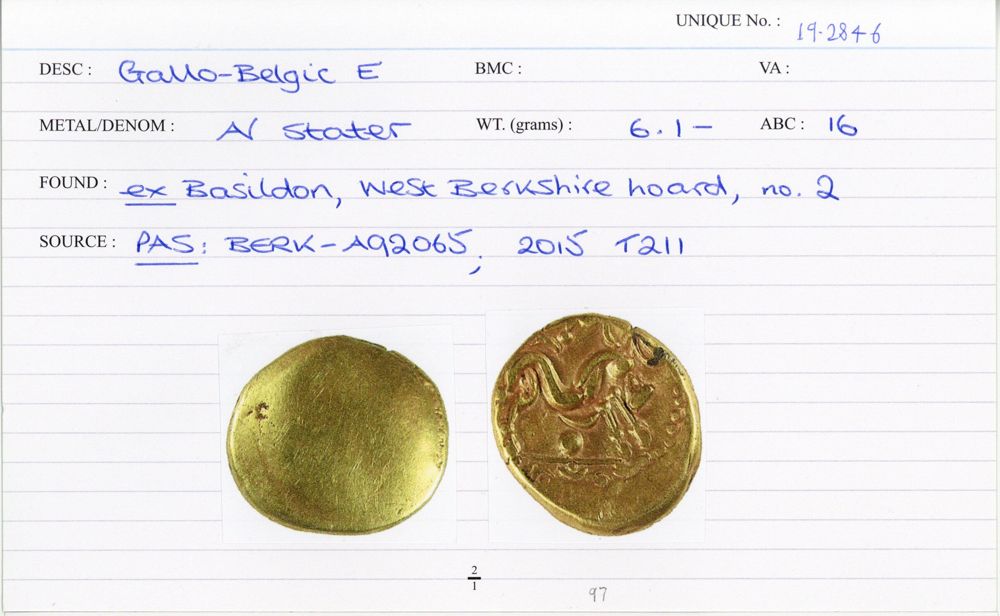 UNIQUE No. : 19-2846
DESC : Gallo-Belgic E BMC : VA :
METAL/DENOM : AV Stater WT. (grams) : 6.1— ABC : 16
FOUND : ex Basildon, West Berkshire hoard, no. 2
SOURCE : PAS: BERK-A92065; 2015 T211
2
1
97